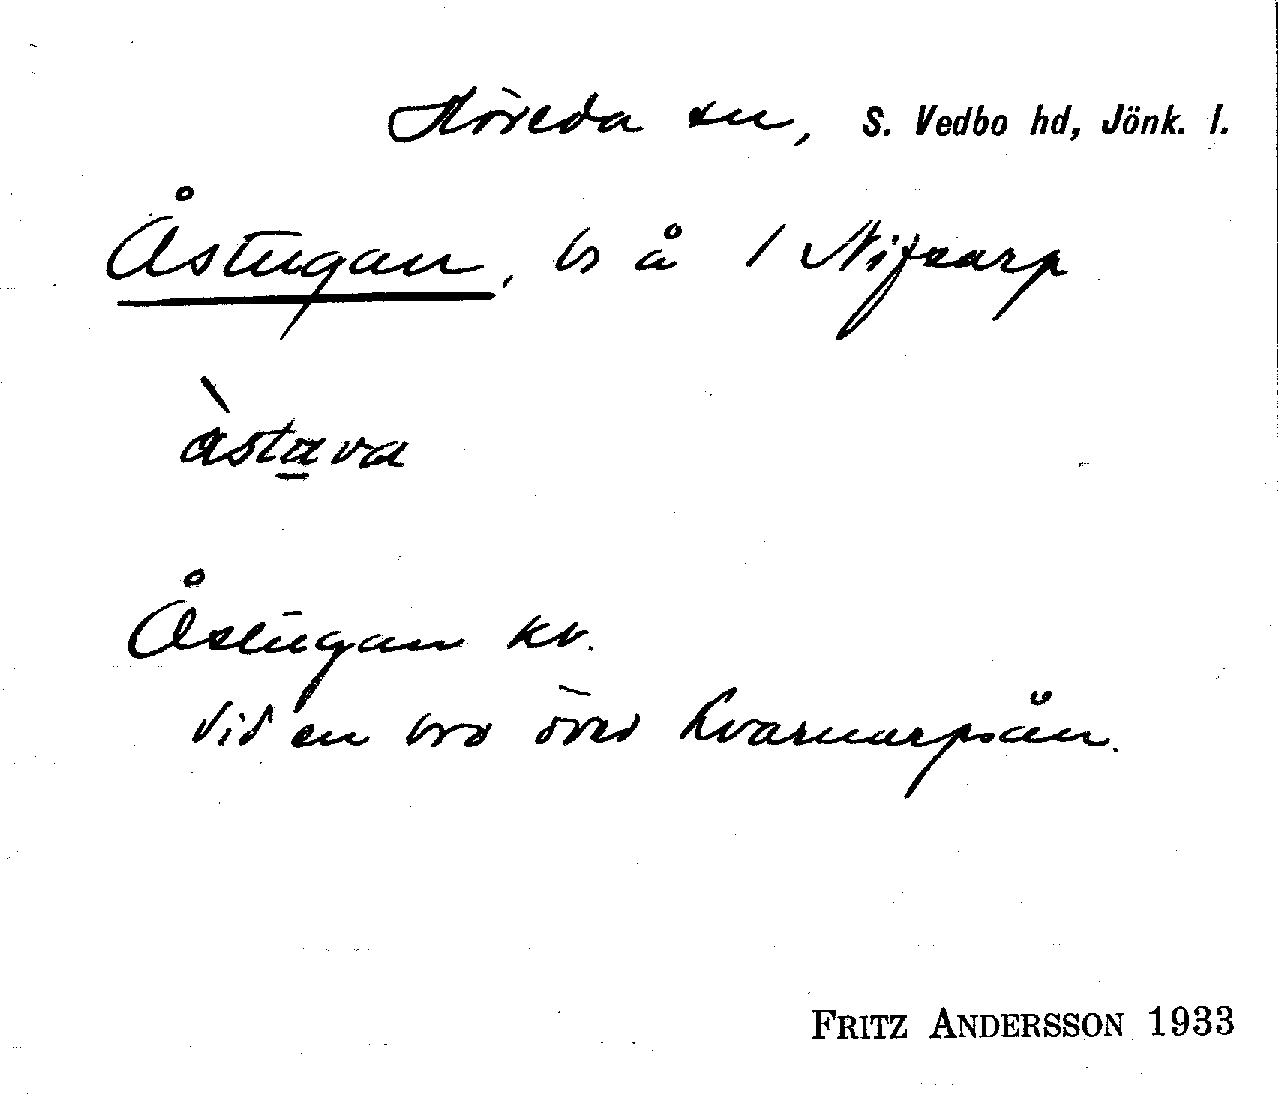 Höreda sn, S. Vedbo hd, Jönk. l.
Åstugan, bs å 1 Nifsarp
àstava
Åstugan kv.
Vid en bro över Kvarnarpsån.
FRITZ ANDERSSON 1933